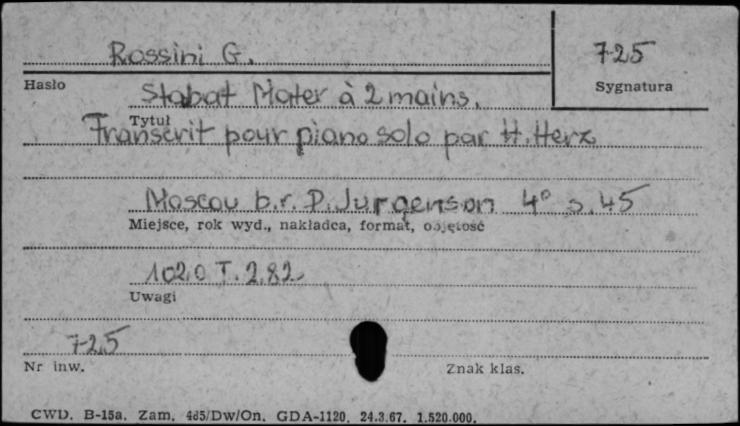 Rossini G.
725
Hasło
Sygnatura
Stabat Mater à 2 mains.
Tytuł
Transcrit pour piano solo par H. Herz
Moscou b.r. P. Jurgenson 4° s. 45
Miejsce, rok wyd., nakładca, format, objętość
1020 T. 2.82
Uwagi
725
Nr inw.
Znak klas.
CWD. B-15a. Zam. 485/Dw/On. GDA-1120. 24.3.67. 1.520.000.